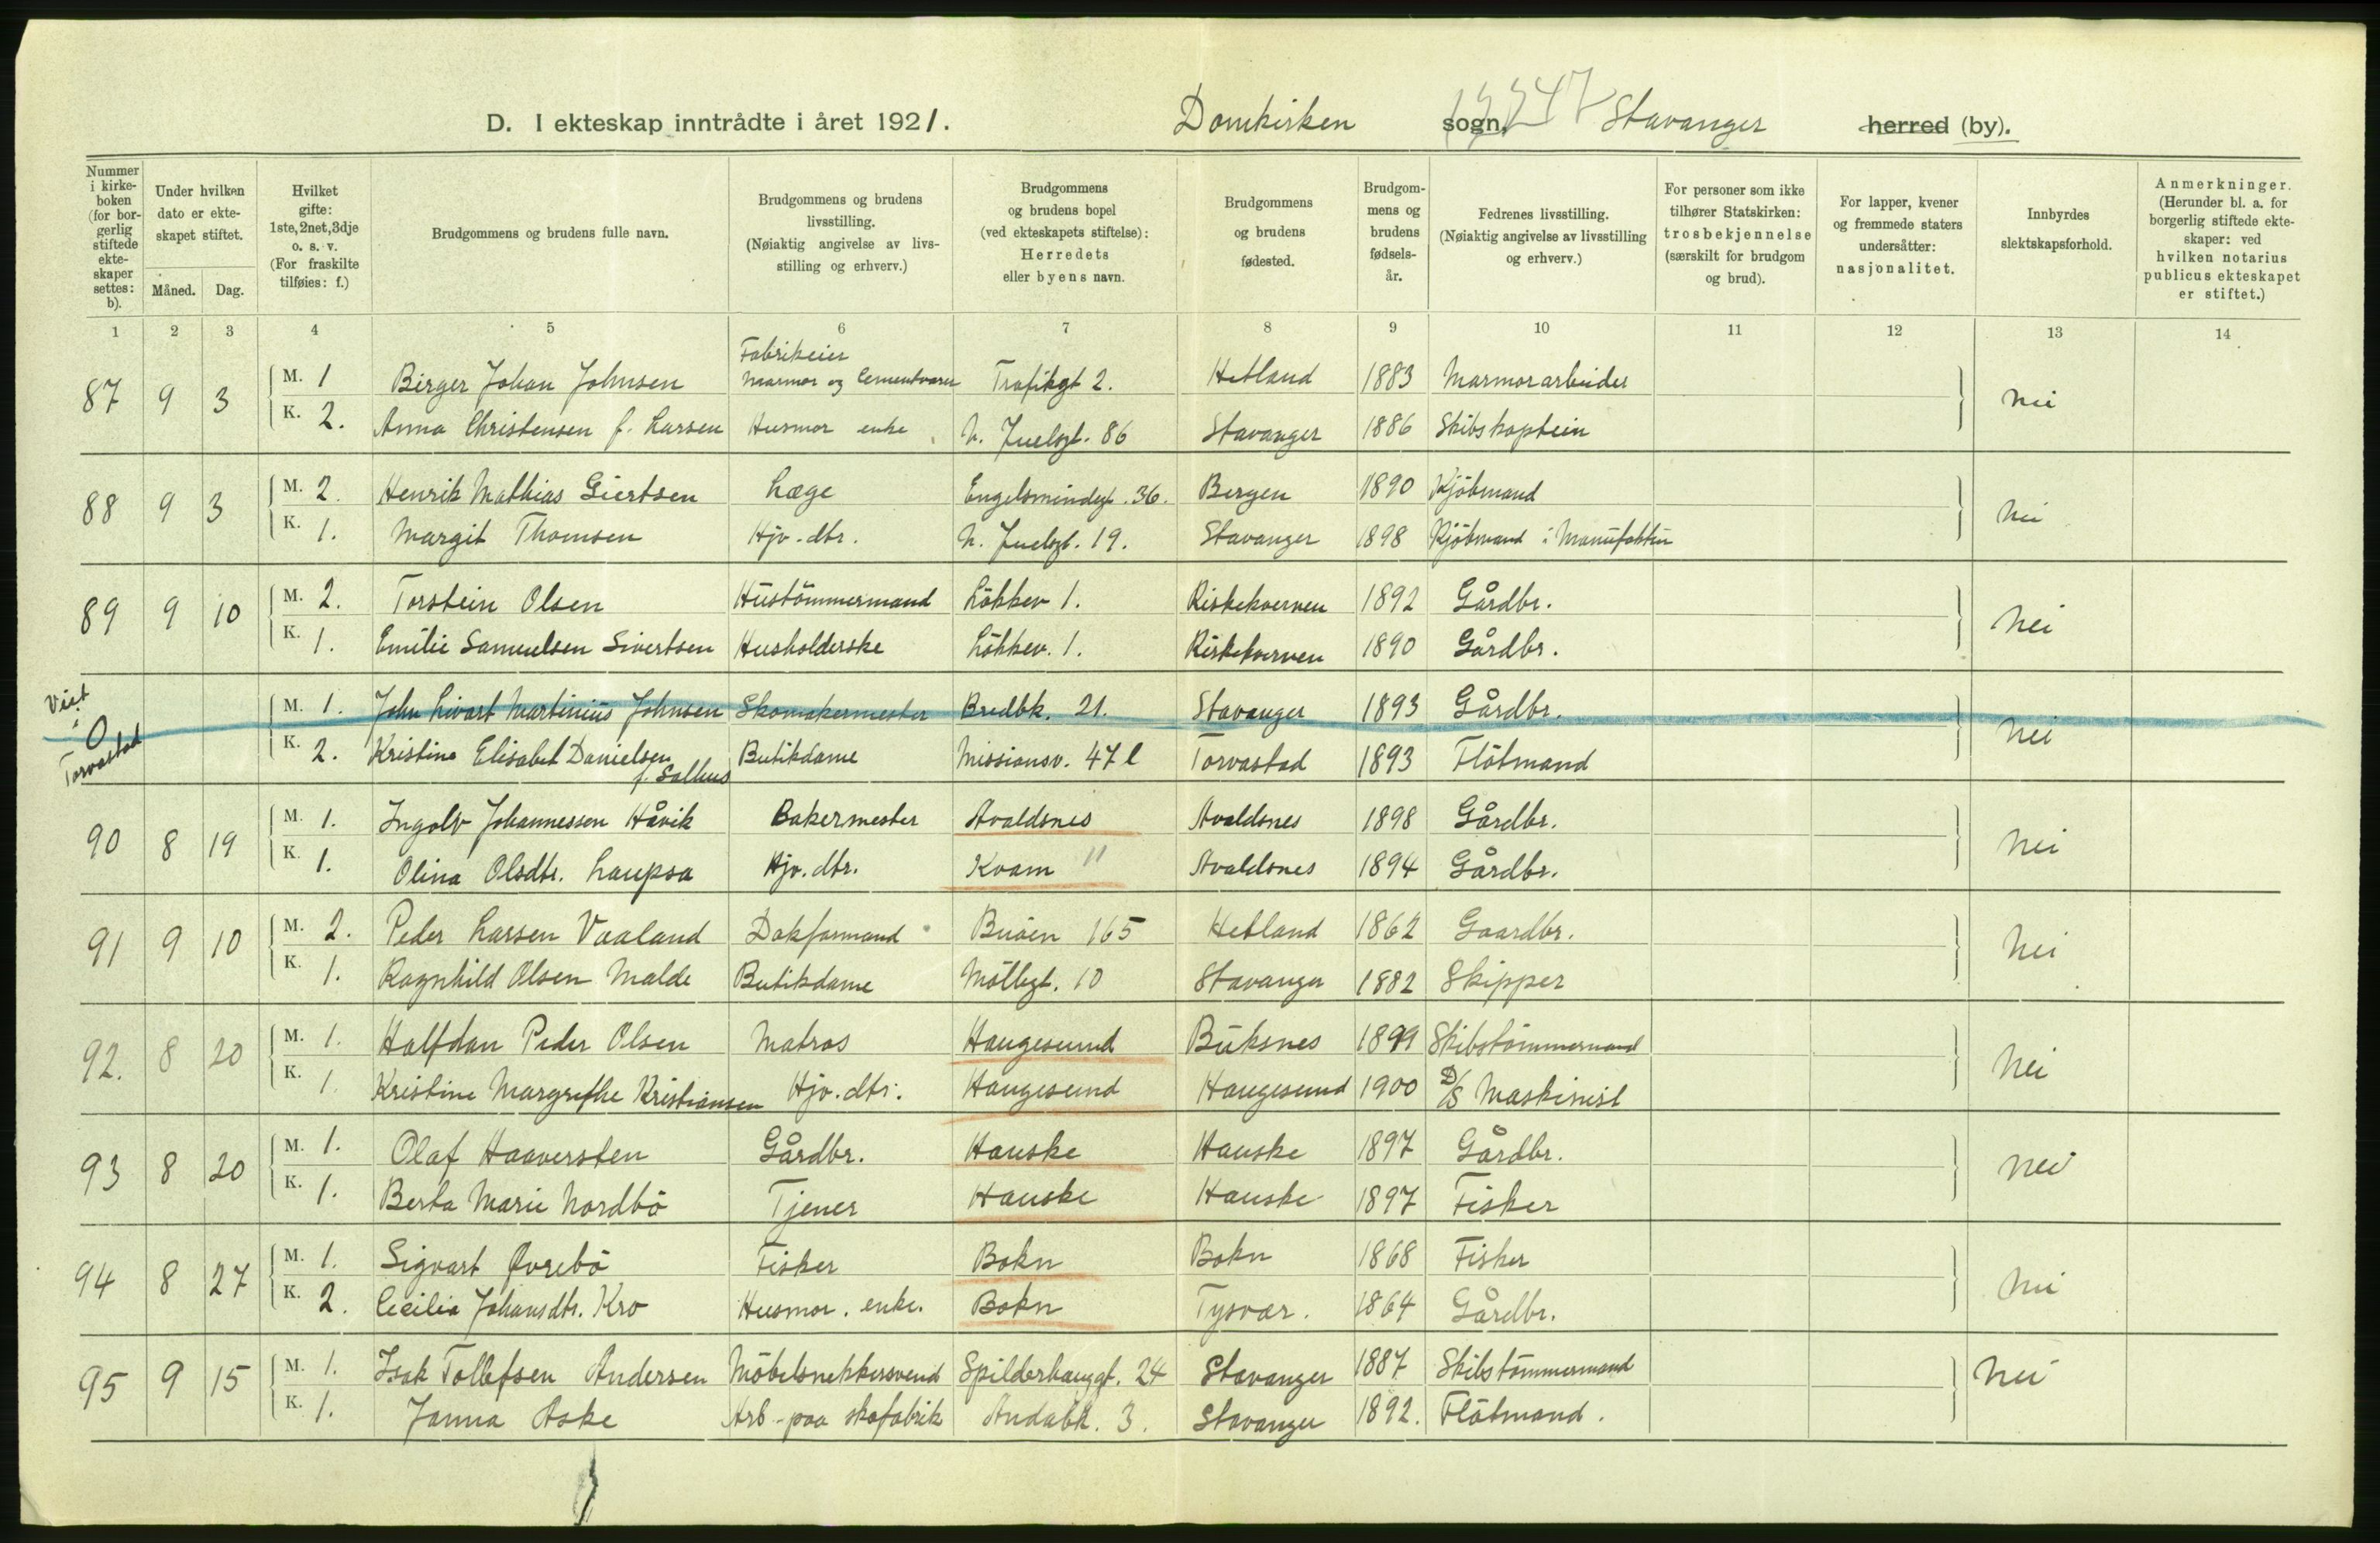 D. I ekteskap inntrådte i året 1921. Domkirken sogn. Stavanger herred (by).
Nummer i kirke-boken (for bor-gerlig stiftede ekte-skaper settes: b).
Under hvilken dato er ekte-skapet stiftet.
Måned. Dag.
Hvilket gifte: 1ste, 2net, 3dje o. s. v. (For fraskilte tilføies: f.)
Brudgommens og brudens fulle navn.
Brudgommens og brudens livsstilling. (Nøiaktig angivelse av livs-stilling og erhverv.)
Brudgommens og brudens bopel (ved ekteskapets stiftelse): Herredets eller byens navn.
Brudgommens og brudens fødested.
Brudgom-mens og brudens fødsels-år.
Fedrenes livsstilling. (Nøiaktig angivelse av livsstilling og erhverv.)
For personer som ikke tilhører Statskirken: trosbekjennelse (særskilt for brudgom og brud).
For lapper, kvener og fremmede staters undersåtter: nasjonalitet.
Innbyrdes slektskapsforhold.
Anmerkninger. (Herunder bl. a. for borgerlig stiftede ekte-skaper: ved hvilken notarius publicus ekteskapet er stiftet.)
1 2 3 4 5 6 7 8 9 10 11 12 13 14
87 9 3 M. 1 Birger Johan Johnsen Fabrikeier Marmor og Cementvarer Trafikgt 2. Hetland 1883 Marmorarbeider nei
K. 2. Anna Christensen f. Larsen Husmor enke N. Juelsgt. 86 Stavanger 1886 Skibskaptein
88 9 3 M. 2. Henrik Mathias Giertsen Læge Engelsmindegt. 36. Bergen 1890 Kjöbmand nei
K. 1. Margit Thomsen Hjv. dtr. N. Juelsgt. 19. Stavanger 1898 Kjöbmand i Manufaktur
89 9 10 M. 2. Torstein Olsen Hustömmermand Lökkev 1. Riskekverven 1892 Gårdbr. nei
K. 1. Emilie Samuelsen Sivertsen Husholderske Lökkev. 1. Riskekverven 1890 Gårdbr.
Viet i Torvastad O M. 1. John Sivart Martinius Johnsen Skomakermester Bredbk. 21. Stavanger 1893 Gårdbr. nei
K. 2. Kristine Elisabet Danielsen f. Salhus Butikdame Missionsv. 47 l Torvastad 1893 Flötmand
90 8 19 M. 1. Ingolv Johannessen Håvik Bakermester Avaldsnes Avaldsnes 1898 Gårdbr. nei
K. 1. Olina Olsdtr. Laupsa Hjv. dtr. Kvam " Avaldsnes 1894 Gårdbr.
91 9 10 M. 2. Peder Larsen Vaaland Dokformand Buöen 165 Hetland 1862 Gaardbr. nei
K. 1. Ragnhild Olsen Malde Butikdame Möllegt. 10 Stavanger 1882 Skipper
92. 8 20 M. 1. Halfdan Peder Olsen Matros Haugesund Buksnes 1899 Skibstömmermand nei
K. 1. Kristine Margrethe Kristiansen Hjv. dtr. Haugesund Haugesund 1900 D/S Maskinist
93 8 20 M. 1. Olaf Haaversten Gårdbr. Hauske Hauske 1897 Gårdbr. nei
K. 1. Berta Marie Nordbö Tjener Hauske Hauske 1897 Fisker
94 8 27 M. 1. Sigvart Øvrebö Fisker Bokn Bokn 1868 Fisker nei
K. 2. Cecilia Johansdtr. Kro Husmor. enke. Bokn Tysvær. 1864 Gårdbr.
95 9 15 M. 1. Isak Tollefsen Andersen Möbelsnekkersvend Spilderhauggt. 24 Stavanger 1887 Skibstömmermand nei
K. 1. Janna Aske Arb. paa skofabrik Andabk. 3. Stavanger 1892. Flötmand.